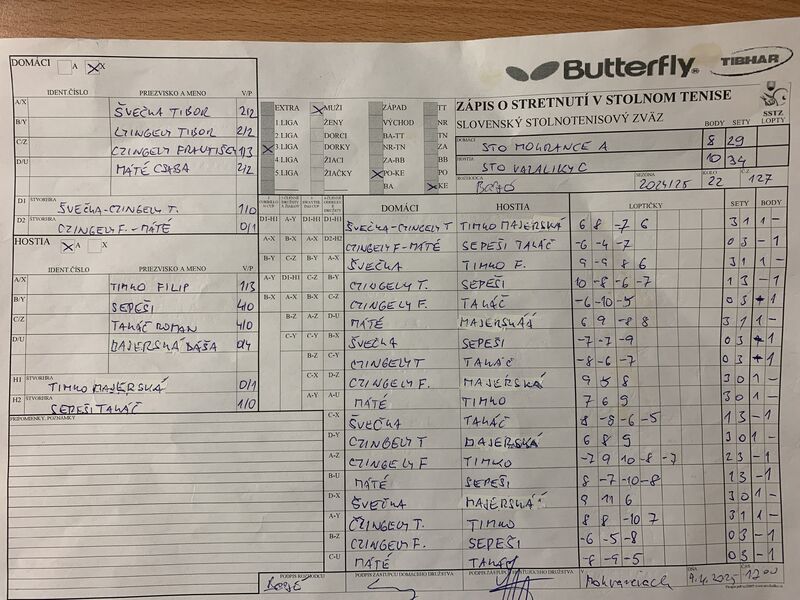 Butterfly
TIBHAR
DOMÁCI A X
IDENT.ČÍSLO PRIEZVISKO A MENO V/P
A/X ŠVEČKA TIBOR 2/2
B/Y CZINGELY TIBOR 2/2
C/Z CZINGELY FRANTIŠEK 1/3
D/U MÁTÉ CSABA 2/2
D1 ŠTVORHRA ŠVEČKA-CZINGELY T. 1/0
D2 ŠTVORHRA CZINGELY F-MÁTÉ 0/1
HOSTIA A X
IDENT.ČÍSLO PRIEZVISKO A MENO V/P
A/X TIMKO FILIP 1/3
B/Y SEPEŠI 4/0
C/Z TAKÁČ ROMAN 4/0
D/U MAJERSKÁ DÁŠA 0/4
H1 ŠTVORHRA TIMKO MAJERSKÁ 0/1
H2 ŠTVORHRA SEPEŠI TAKÁČ 1/0
PRIPOMIENKY, POZNÁMKY
EXTRA MUŽI ZÁPAD TT
1 LIGA ŽENY VÝCHOD NR
2 LIGA DORCI BA-TT TN
3 LIGA DORKY NR-TN ZA
4 LIGA ŽIACI ZA-BB BB
5 LIGA ŽIAČKY PO-KE PO
BA KE
ZÁPIS O STRETNUTÍ V STOLNOM TENISE
SLOVENSKÝ STOLNOTENISOVÝ ZVÄZ
SSTZ
BODY SETY LOPTY
DOMÁCI STO MOKRANCE A 8 29
HOSTIA STO VALALIKY C 10 34
ROZHODCA SEZÓNA 2024/25 KOLO 22 Č.Z 127
DOMÁCI HOSTIA LOPTIČKY SETY BODY
D1-H1 ŠVEČKA-CZINGELY T TIMKO MAJERSKÁ 6 8 -7 6 3 1 1 -
D2-H2 CZINGELY F-MÁTÉ SEPEŠI TAKÁČ -6 -4 -7 0 3 - 1
A-X ŠVEČKA TIMKO F. 9 -9 8 6 3 1 1 -
B-Y CZINGELY T. SEPEŠI 10 -8 -6 -7 1 3 - 1
C-Z CZINGELY F. TAKÁČ -6 -10 -5 0 3 - 1
D-U MÁTÉ MAJERSKÁ 6 9 -8 8 3 1 1 -
B-X ŠVEČKA SEPEŠI -7 -7 -9 0 3 - 1
CZINGELY T TAKÁČ -8 -6 -7 0 3 - 1
CZINGELY F. MAJERSKÁ 9 5 8 3 0 1 -
A-U MÁTÉ TIMKO 7 6 9 3 0 1 -
C-X ŠVEČKA TAKÁČ 8 -8 -6 -5 1 3 - 1
D-Y CZINGELY T MAJERSKÁ 6 8 9 3 0 1 -
A-Z CZINGELY F TIMKO -7 9 10 -8 -7 2 3 - 1
B-U MÁTÉ SEPEŠI 8 -7 -10 -8 1 3 - 1
D-X ŠVEČKA MAJERSKÁ 9 11 6 3 0 1 -
A-Y CZINGELY T. TIMKO 8 8 -10 7 3 1 1 -
B-Z CZINGELY F. SEPEŠI -6 -5 -8 0 3 - 1
C-U MÁTÉ TAKÁČ -8 -9 -5 0 3 - 1
PODPIS ROZHODCU PODPIS ZÁSTUPCU DOMÁCEHO DRUŽSTVA PODPIS ZÁSTUPCU HOSŤUJÚCEHO DRUŽSTVA V Mokranciach DŇA 9.4.2025 ČAS 17 00